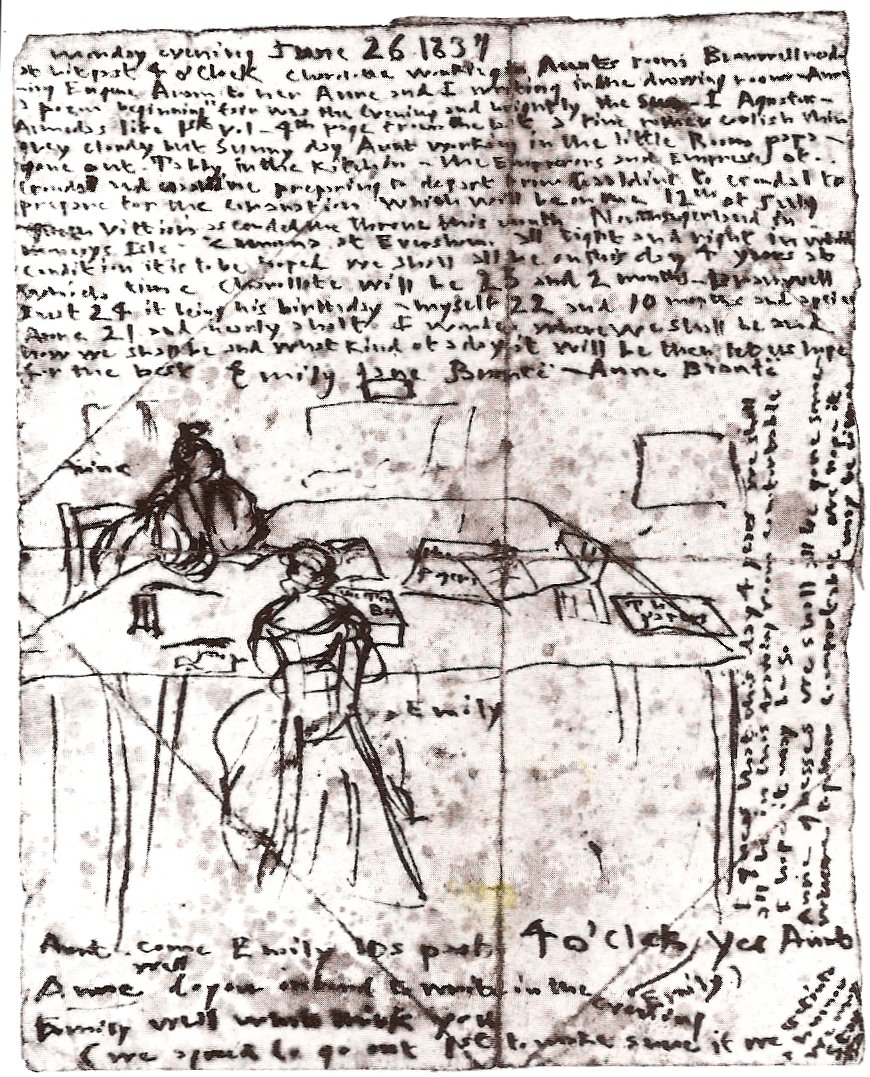 Monday evening June 26 1837
at bit past 4 o'Clock Charolotte working in Aunts room Branwell reading
Eugene Aram to her Anne and I writing in the drawing room - Anne
a poem beginning "fair was the evening and brightly the Sun - I Agustus -
Almedas life 1st vol - 4th page from the last a fine rather coolish thin
grey cloudy but Sunny day Aunt working in the little Room papa -
gone out. Tabby in the Kitchin - the Emperors and Empresses of
Gondal and Gaaldine preparing to depart from Gaaldine to Gondal to
prepare for the coranation which will be on the 12th of July
Queen Vittoria ascended the throne this month Northangerland in
Monceys Isle - Zamorna at Eversham. all tight and right in which
condition it is to be hoped we shall all be on this day 4 years at
which time Charollote will be 25 and 2 months - Branwell
just 24 it being his birthday - myself 22 and 10 months and a peice
Anne 21 and nearly a half I wonder where we shall be and
how we shall be and what kind of a day it will be then let us hope
for the best Emily Jane Brontë - Anne Brontë
Anne
The
papers
The
papers
Emily
I guess that this day 4 years we shall
all be in this drawing room comfortable
I hope it may be so
Anne guesses we shall all be gone some
where together comfortable We hope it
may be
Aunt. come Emily Its past 4 o'Clock, yes Aunt
Anne well do you intend to write in the evening
Emily well what think you
(we agreed to go out 1st to make sure if we